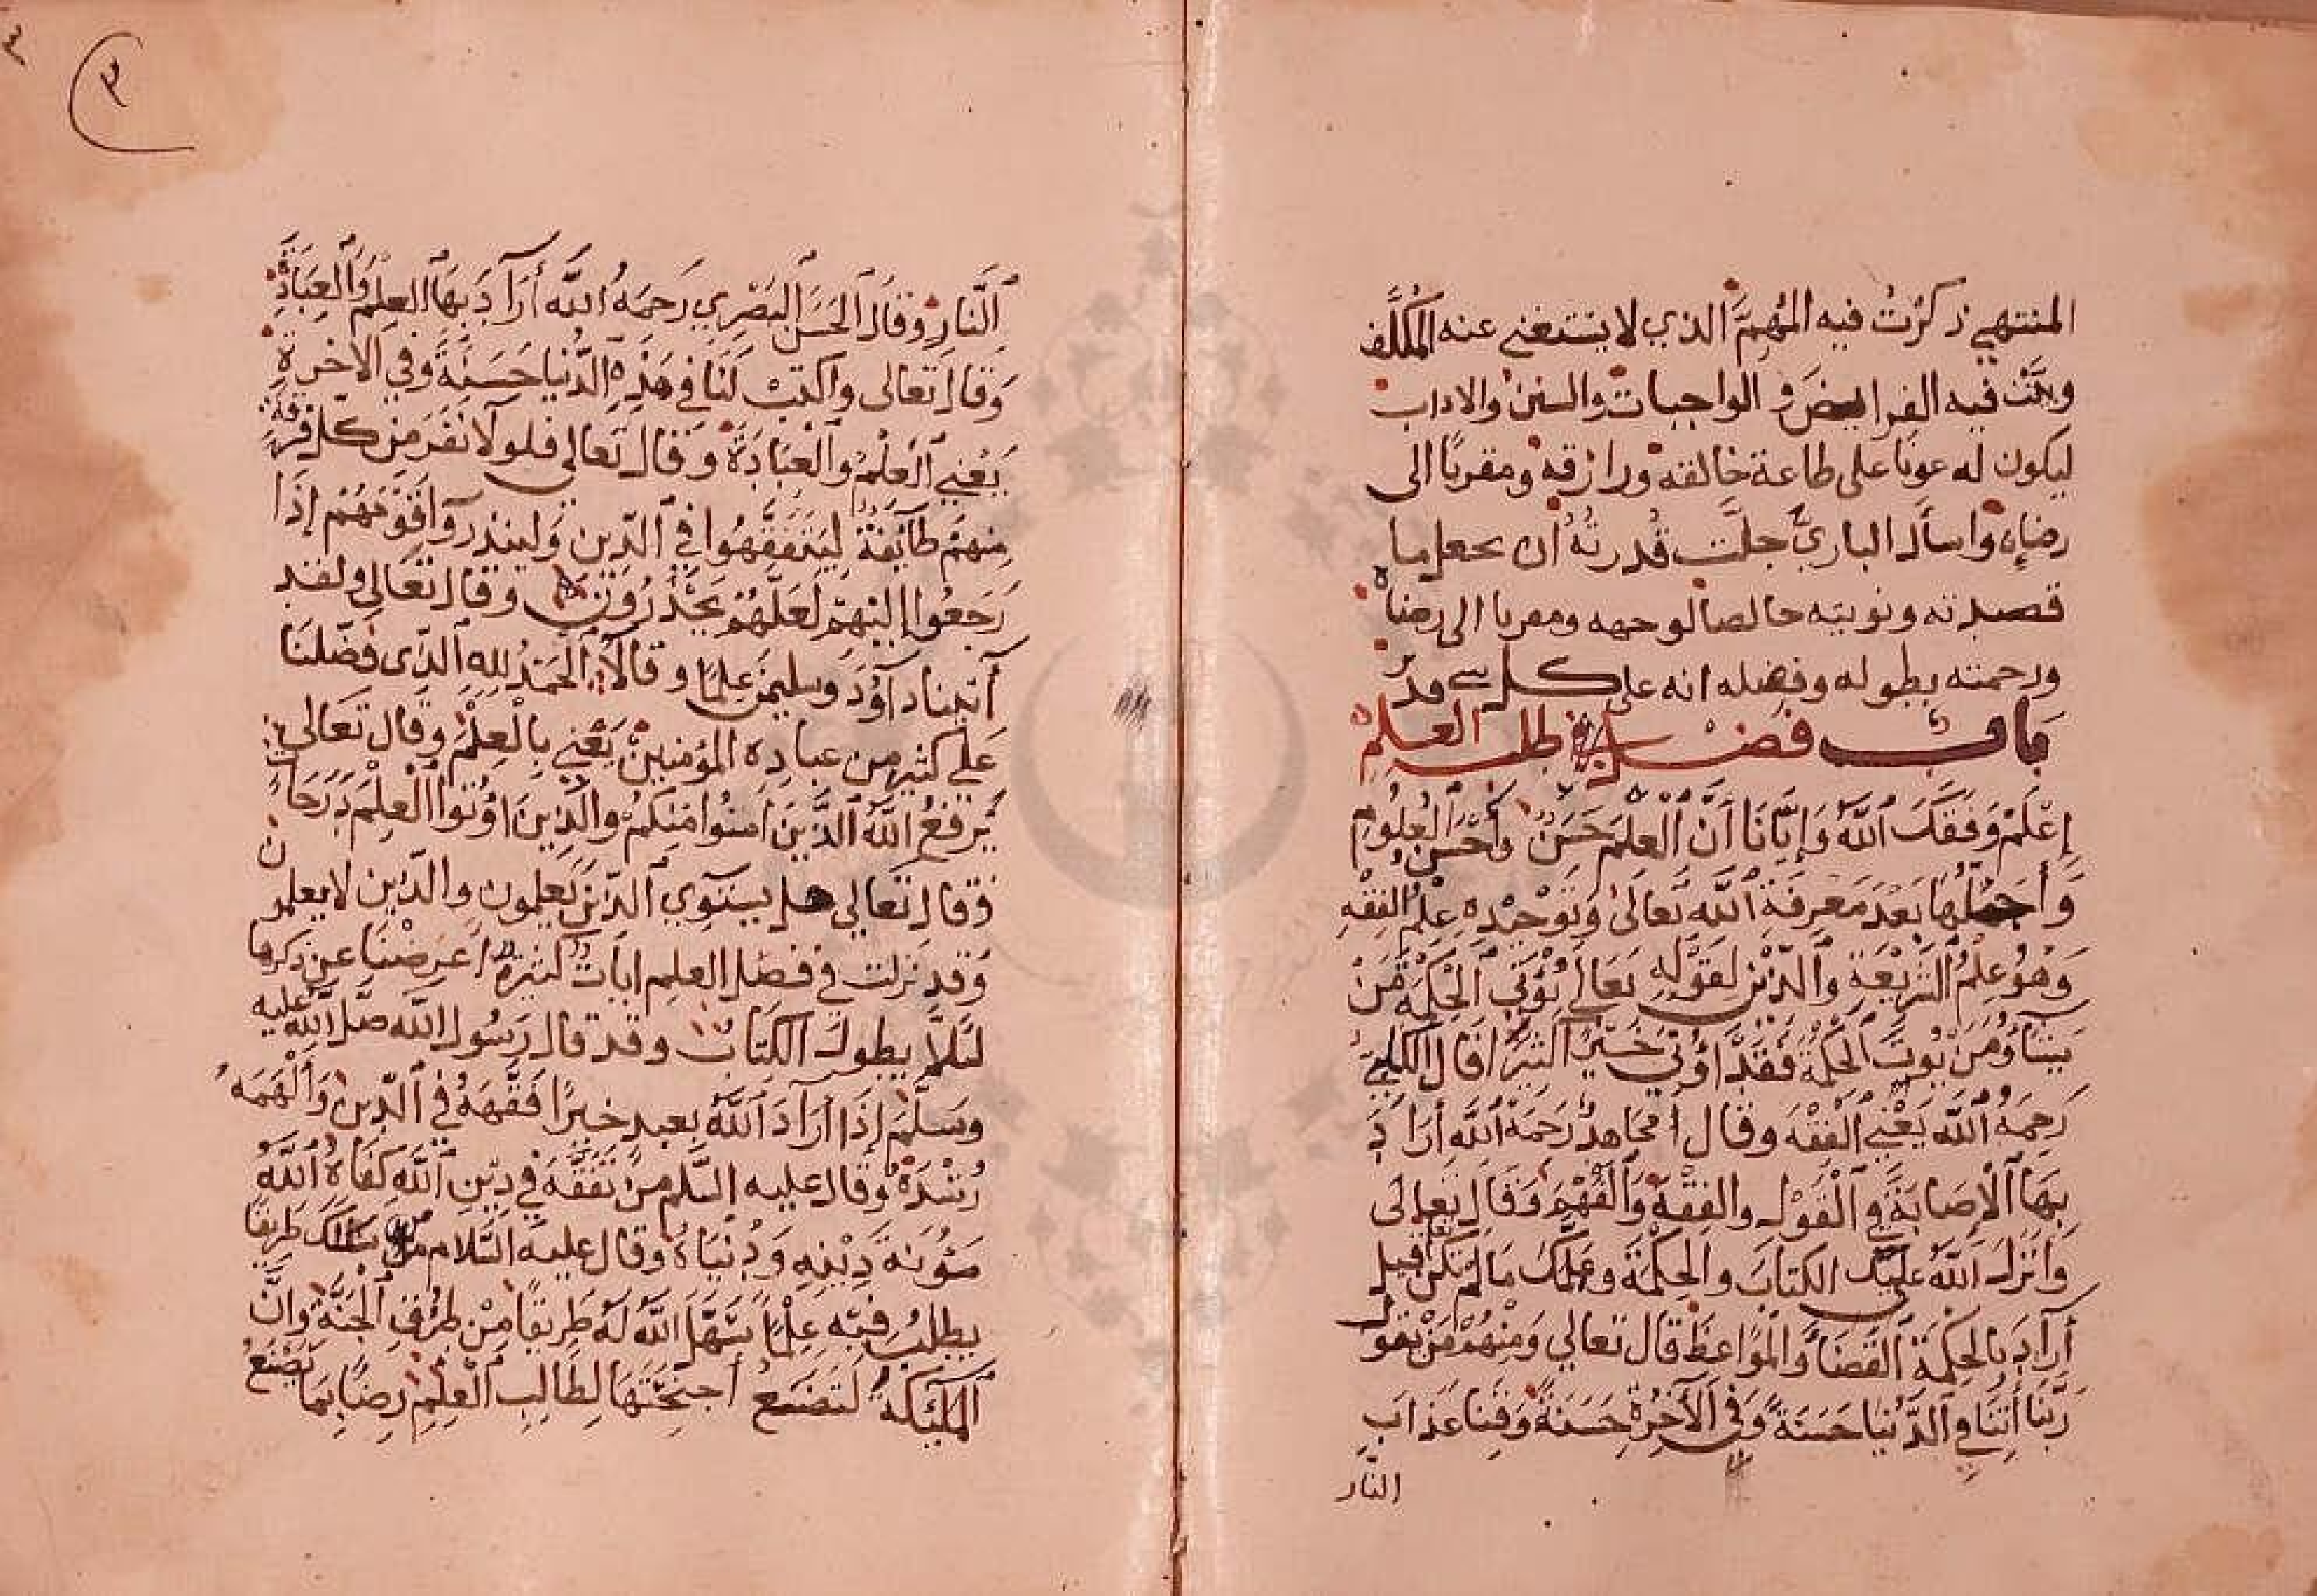 المنتهي ذكرْتُ فيه المُهِمَّ الذي لا يستغني عنه المكلَّف
وبيَّنْت فيه الفرايض والواجبات والسنن والاداب
ليكون له عونا على طاعة خالقه ورازقه ومقربا الى
رضاه واسأل الباريَ جلَّت قُدرتُهُ أن يجعل ما
قصدته ونويته خالصا لوجهه ومقربا الى رضاه
ورحمته بطوله وفضله انه على كل شي قدير
باب فضل في طلب العلم
إعْلَمْ وَفَّقَكَ اللهُ وَإِيَّانَا أَنَّ الْعِلْمَ حَسَنٌ وأحْسَنُ العُلُومِ
وَأَجْمَلُهَا بَعْدَ مَعْرِفَةِ اللهِ تَعَالَى وَتَوْحِيْدِهِ عِلْمُ الفِقْهِ
وَهُوَ عِلْمُ الشَّرِيْعَةِ وَالدِّيْنِ لِقَوْلِهِ تَعَالَى يُؤْتِي الْحِكْمَةَ مَنْ
يَشَآءُ وَمَنْ يُوتَ الحِكْمَةَ فَقَدْ اُوْتِيَ خَيْرًا كَثِيْرًا قَالَ الكَلْبِي
رَحِمَهُ اللهُ يَعْنِي الْفِقْهَ وقال مجاهدٌ رَحِمَهُ اللهُ أرَادَ
بِهَا الْاِصَابَةَ فِي الْقَوْلِ والفِقْهَ وَالْفَهْمَ وَقَالَ تَعَالَى
وَاَنْزَلَ اللهُ عَلَيْكَ الكتابَ والحِكْمَةَ وعَلَّمَكَ مَا لَمْ تَكُنْ تعلم قيل
أرَادَ بِالحِكْمَةِ القَضَاءَ وَالْمَوَاعِظَ قال تعالي وَمِنْهُمْ مَنْ يَقُولُ
رَبَّنَا اٰتِنَا فِي الدُّنْيَا حَسَنَةً وَفِي الْآخِرَةِ حَسَنَةً وَقِنَا عَذَابَ
النَّار
٣
النَّارِ وَقَالَ الحَسَنُ البَصْرِي رَحِمَهُ اللهُ أرَادَ بِهَا العِلْمَ وَالْعِبَادَةَ
وَقَالَ تَعالى واكتب لَنَا في هَذِهِ الدُّنْيا حَسَنَةً وفي الآخرة
يَعْنِي الْعِلْمَ وَالْعِبَادَةَ وَقَالَ تَعَالي فلولا نفَرَ مِنْ كلِّ فرقة
مِنهمْ طَآئِفَةٌ لِيَتَفَقَّهُوا فِي الدِّينِ وَلينذروا قَوْمَهُمْ إذَا
رَجَعُوا إليْهِمْ لَعَلَّهُمْ يَحْذَرُونَ وقال تعَالي ولقد
آتينا داوُدَ وسليمٰن عِلْما وقالَا الحَمْدُ للهِ الَّذِي فَضَّلَنَا
علي كثير من عبادِهِ المؤمنين يَعْنِي بِالْعِلْم وقال تعَالي
يَرْفَعُ اللهُ الَّذِيْنَ آمنُوا مِنكمْ والَّذِينَ اُوْتُوا الْعِلْمَ دَرَجَات
وَقال تَعالي هل يستوي الذين يَعلمون والذين لا يعلمون
وَقد نزلت في فضل العلم ايات كثيرة اعرضْنَا عن ذكرها
لئلَّا يطول الكتاب وقد قال رَسُول الله صَلَّى اللهُ عليه
وسَلَّمَ إذَا أرَادَ اللهُ بعبدٍ خيرًا فَقَّهَهُ في الدِّين وَأَلْهَمَهُ
رُشْدَهُ وقال عليه السَّلم مَنْ تَفَقَّهَ فِي دِيْنِ اللهِ كَفَاهُ اللهُ
مَؤُنَةَ دِيْنِهِ وَدُنْيَاهُ وقال عليه السَّلام من سَلَكَ طَرِيْقًا
يطلبُ فيْه عِلْمًا سَهَّلَ اللهُ لَهُ طَرِيقًا مِنْ طُرُقِ الْجَنَّةِ وَانَّ
الْمَلٰئِكَةَ لَتَضَعُ أجنِحَتَهَا لِطَالِبِ الْعِلْمِ رِضًا بِمَا يَصْنَعُ